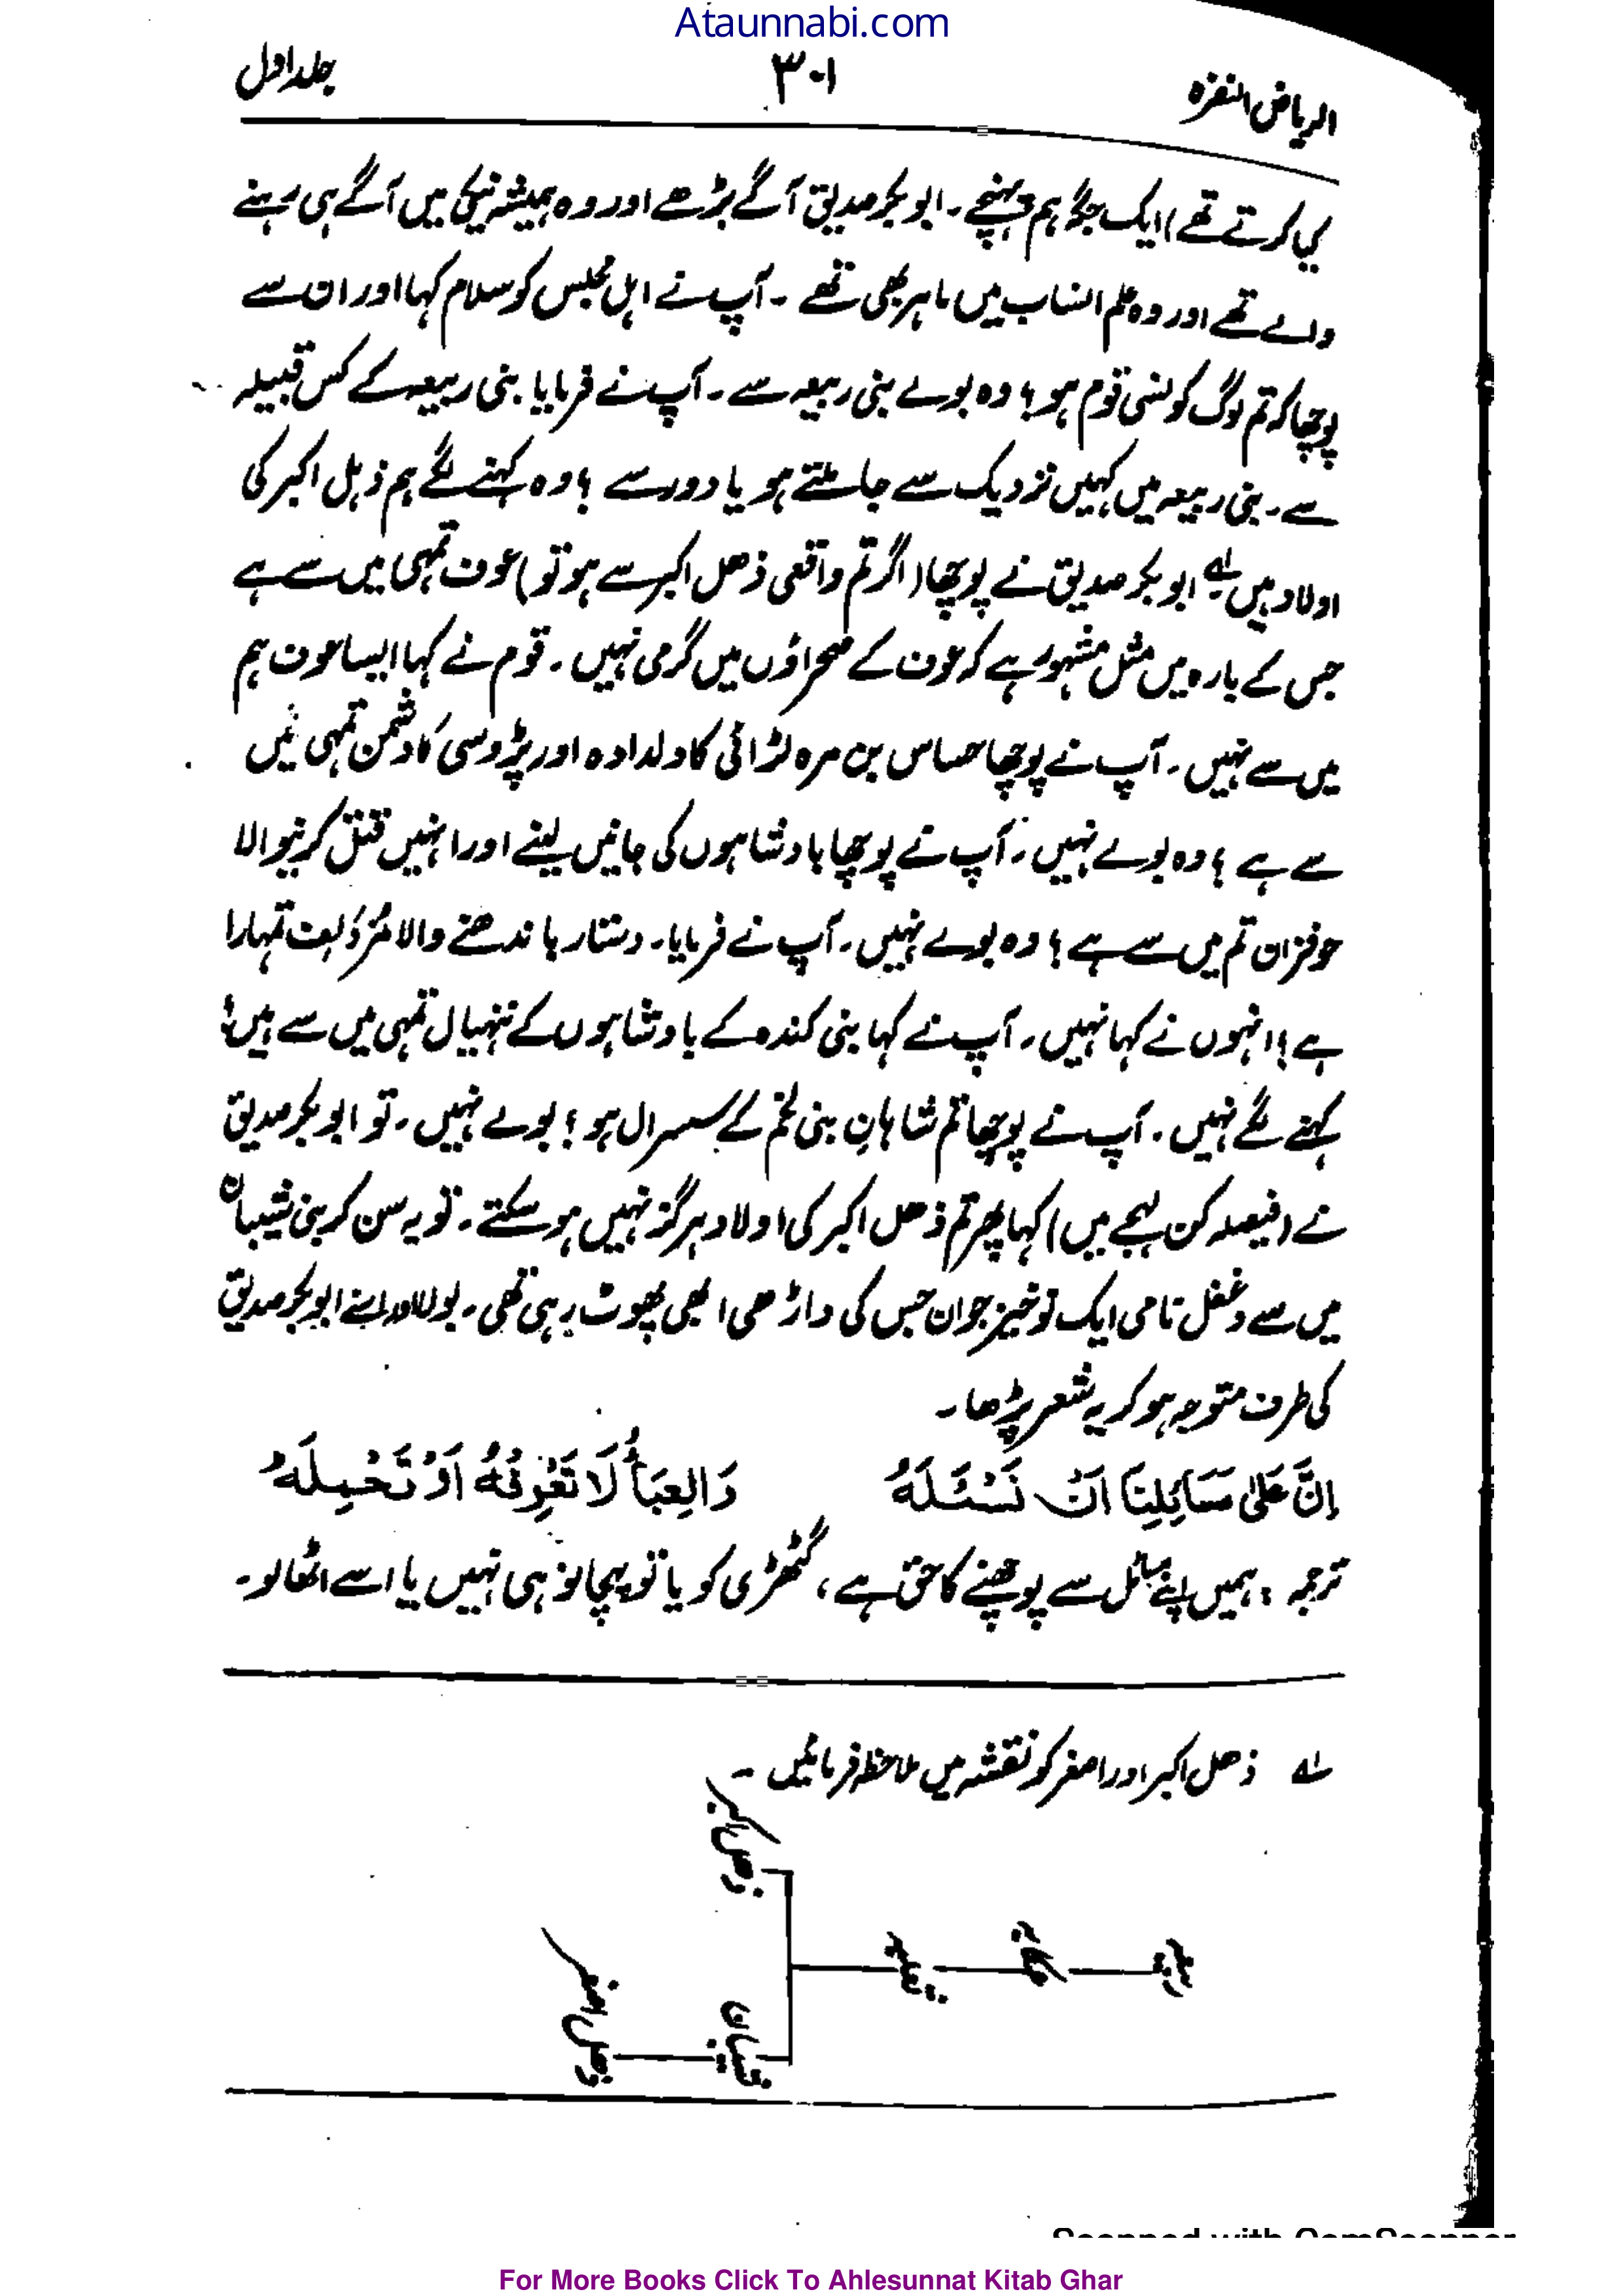 Ataunnabi.com
الریاض النضرہ ۳۰۱ جلد اول
کیا کرتے تھے) ایک جگہ ہم پہنچے۔ ابوبکر صدیق آگے بڑھے اور وہ ہمیشہ نیکی میں آگے ہی رہنے
والے تھے اور وہ علم انساب میں ماہر بھی تھے ۔ آپ نے اہل مجلس کو سلام کہا اور ان سے
پوچھا کہ تم لوگ کونسی قوم ہو؟ وہ بولے بنی ربیعہ سے۔ آپ نے فرمایا بنی ربیعہ کے کس قبیلہ
سے۔ بنی ربیعہ میں کہیں نزدیک سے جا ملتے ہو یا دور سے ؟ وہ کہنے لگے ہم ذہل اکبر کی
اولاد ہیں لے ابوبکر صدیق نے پوچھا (اگر تم واقعی ذھل اکبر سے ہو تو) عوف تمہی میں سے ہے
جس کے بارہ میں مثل مشہور ہے کہ عوف کے صحراؤں میں گرمی نہیں ۔ قوم نے کہا ایسا عوف ہم
میں سے نہیں ۔ آپ نے پوچھا حساس بن مرہ لڑائی کا دلدادہ اور پڑوسی کا دشمن تمہی میں
سے ہے ؟ وہ بولے نہیں ۔ آپ نے پوچھا بادشاہوں کی جانیں لینے اور انہیں قتل کرنیوالا
حوفزان تم میں سے ہے ؟ وہ بولے نہیں ۔ آپ نے فرمایا۔ دستار باندھنے والا مُزْدَلِف تمہارا
ہے ؟ انہوں نے کہا نہیں ۔ آپ نے کہا بنی کندہ کے بادشاہوں کے ننہیال تمہی میں سے ہیں؟
کہنے لگے نہیں ۔ آپ نے پوچھا تم شاہانِ بنی لخم کے سسرال ہو ؟ بولے نہیں ۔ تو ابوبکر صدیق
نے (فیصلہ کن لہجے میں) کہا پھر تم ذھل اکبر کی اولاد ہرگز نہیں ہو سکتے ۔ تو یہ سن کر بنی شیبان
میں سے دغفل نامی ایک نوخیز جوان جس کی داڑھی ابھی پھوٹ رہی تھی ۔ بولا اور اپنے ابوبکر صدیق
کی طرف متوجہ ہو کر یہ شعر پڑھا ۔
اِنَّ عَلیٰ سَائِلِنَا اَنْ نَسْئَلَهُ وَالِعبَأُ لَا تَعْرِفُهُ اَوْ تَحْمِلَهُ
ترجمہ : ہمیں اپنے سائل سے پوچھنے کا حق ہے ، گٹھڑی کو یا تو پہچانو ہی نہیں یا اسے اٹھا لو ۔
لے ذھل اکبر اور اصغر کو نقشہ میں ملاحظہ فرمائیں ۔
ذھل اکبر
ثعلبہ
شیبان
ذھل اصغر
For More Books Click To Ahlesunnat Kitab Ghar